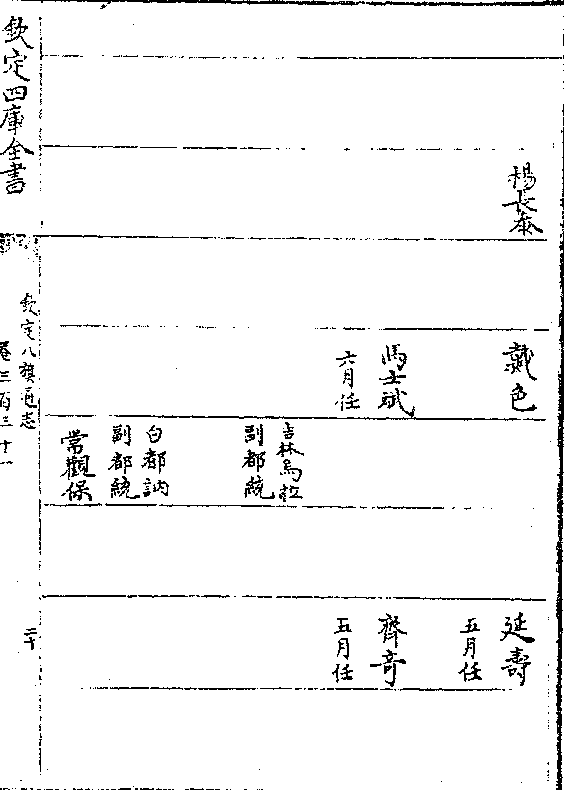 楊長泰
戴色
馬士斌
六月任
吉林烏拉
副都統
白都訥
副都統
常觀保
延壽
五月任
齊奇
五月任
欽定四庫全書
欽定八旗通志
卷三百三十一
二十